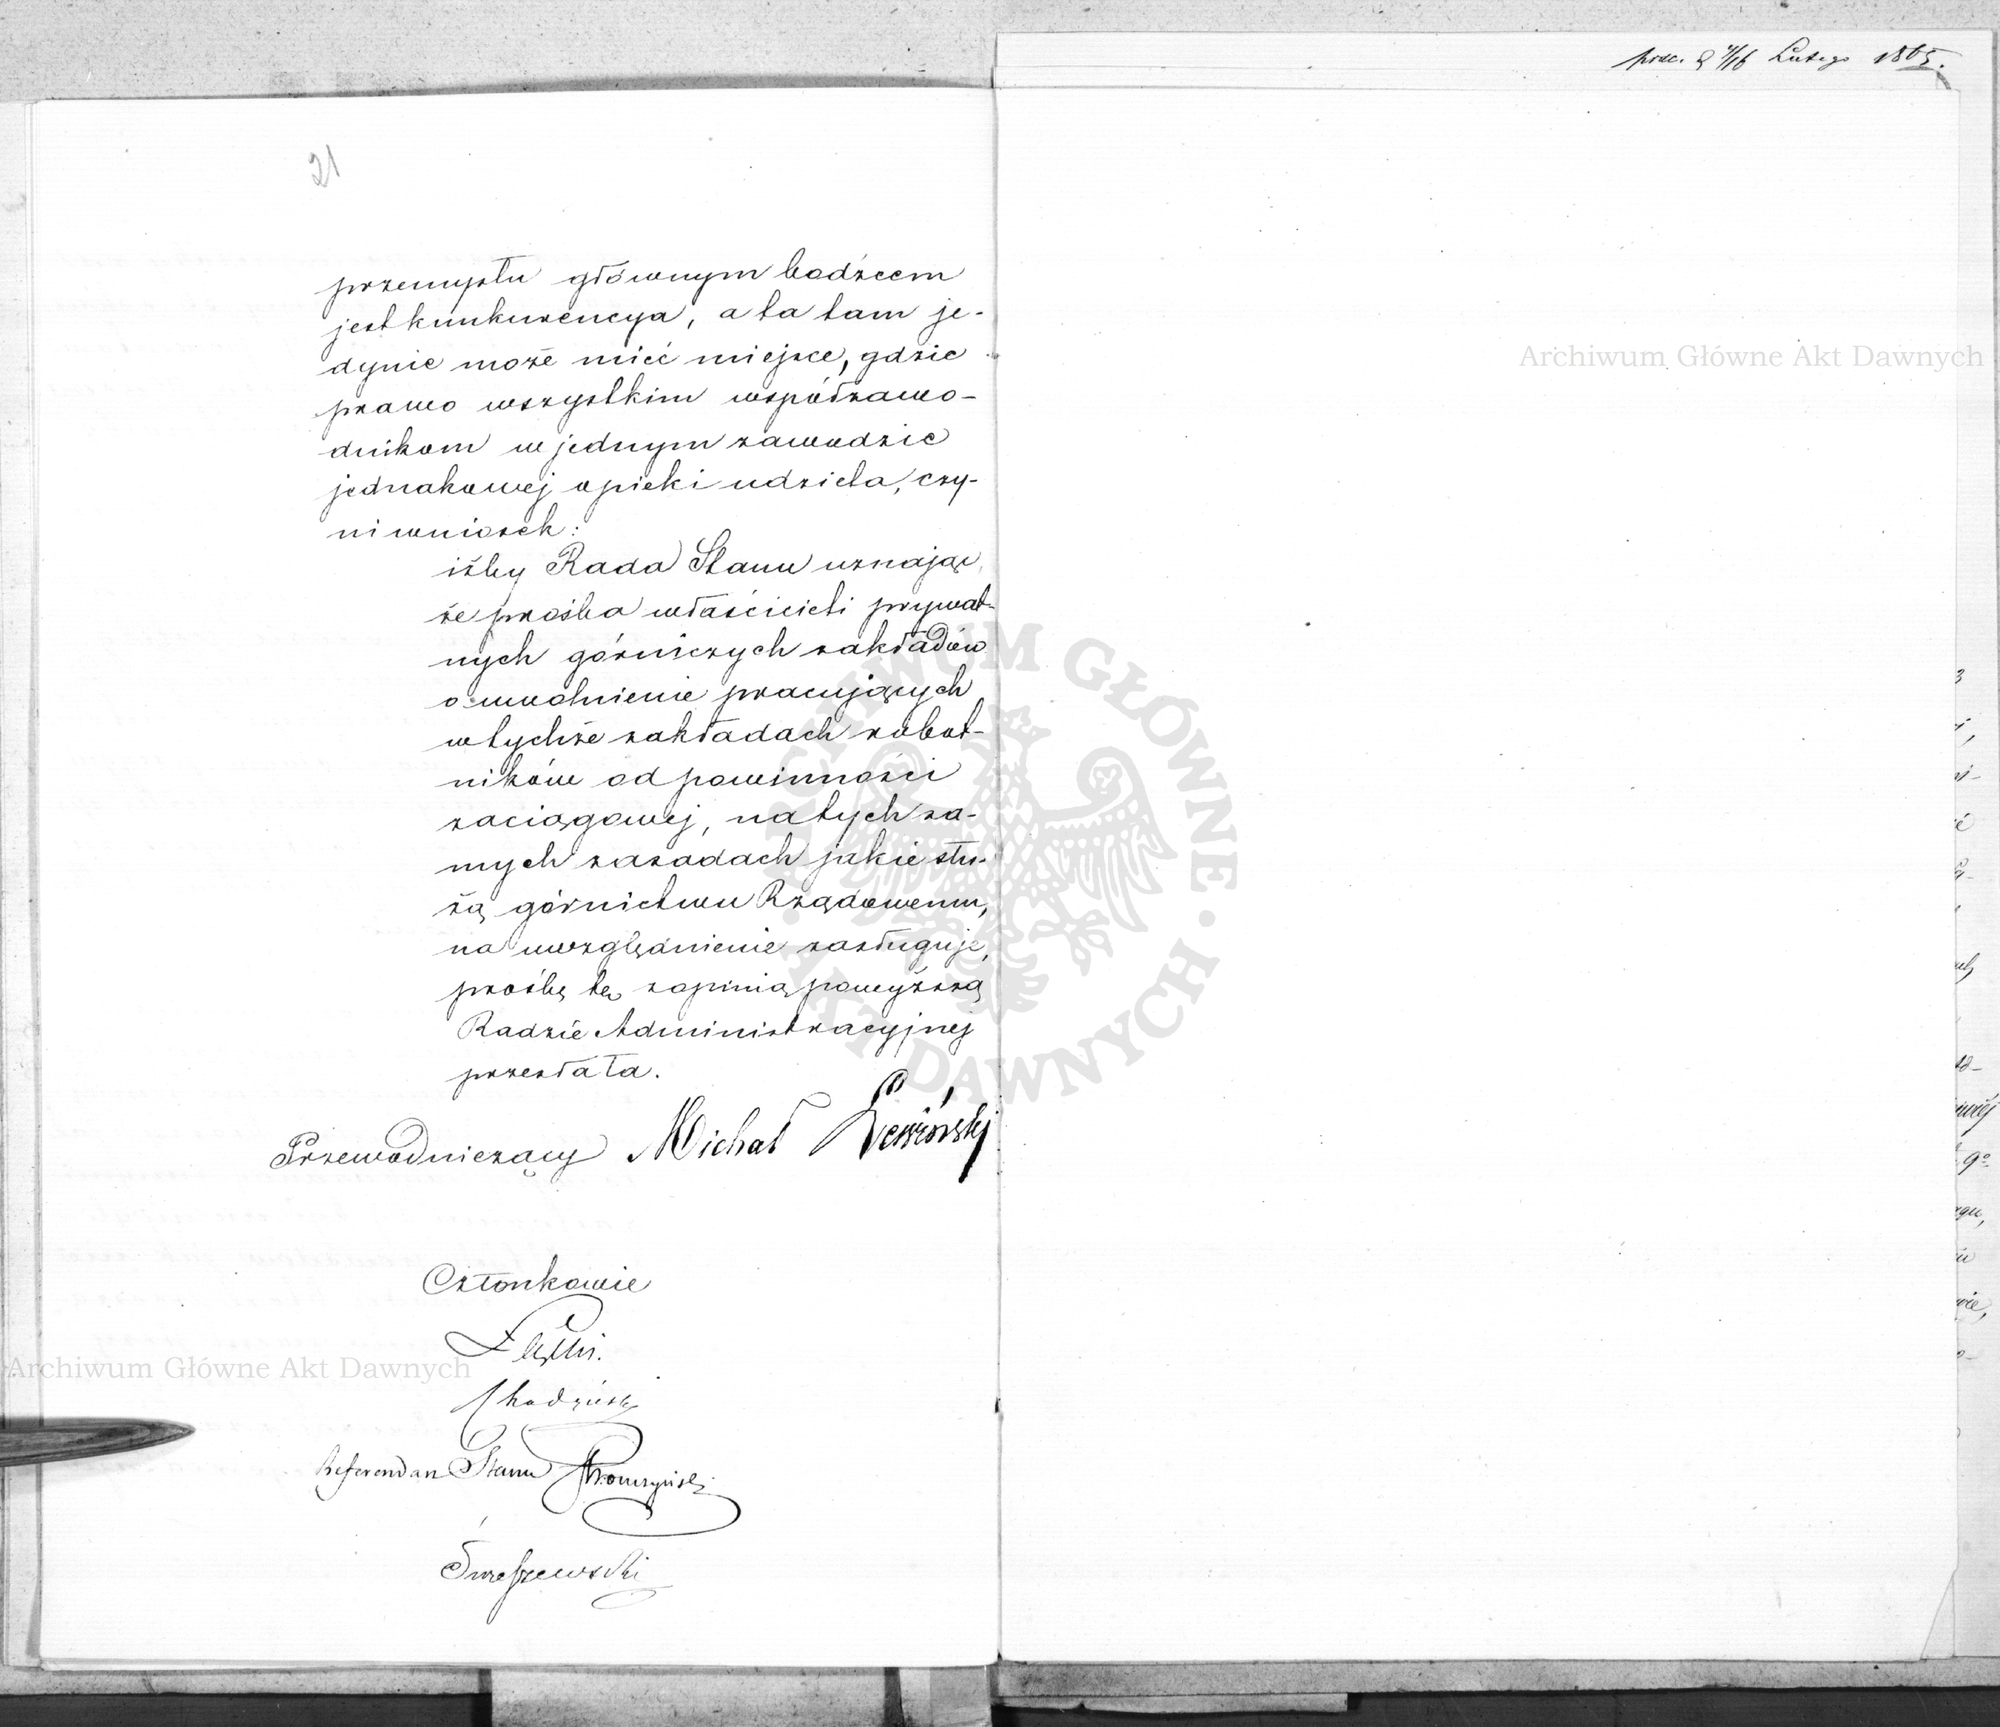 21
przemysłu głównym bodźcem
jest kunkurencya, a ta tam je-
dynie może mieć miejsce, gdzie
prawo wszystkim współzawo-
dnikom w jednym zawodzie
jednakowej opieki udziela, czy-
ni wniosek:
iżby Rada Stanu uznając,
że prośba właścicieli prywat-
nych górniczych zakładów
o uwolnienie pracujących
w tychże zakładach robot-
ników od powinności
zaciągowej, na tych sa-
mych zasadach jakie słu-
żą górnictwu Rządowemu,
na uwzględnienie zasługuje,
prośbę tę z opinią powyższą
Radzie Administracyjnej
przesłała.
Przewodniczący Michał
Członkowie
Referendarz Stanu
4/16 Lutego 1865.
Archiwum Główne Akt Dawnych
Archiwum Główne Akt Dawnych
ARCHIWUM GŁÓWNE AKT DAWNYCH